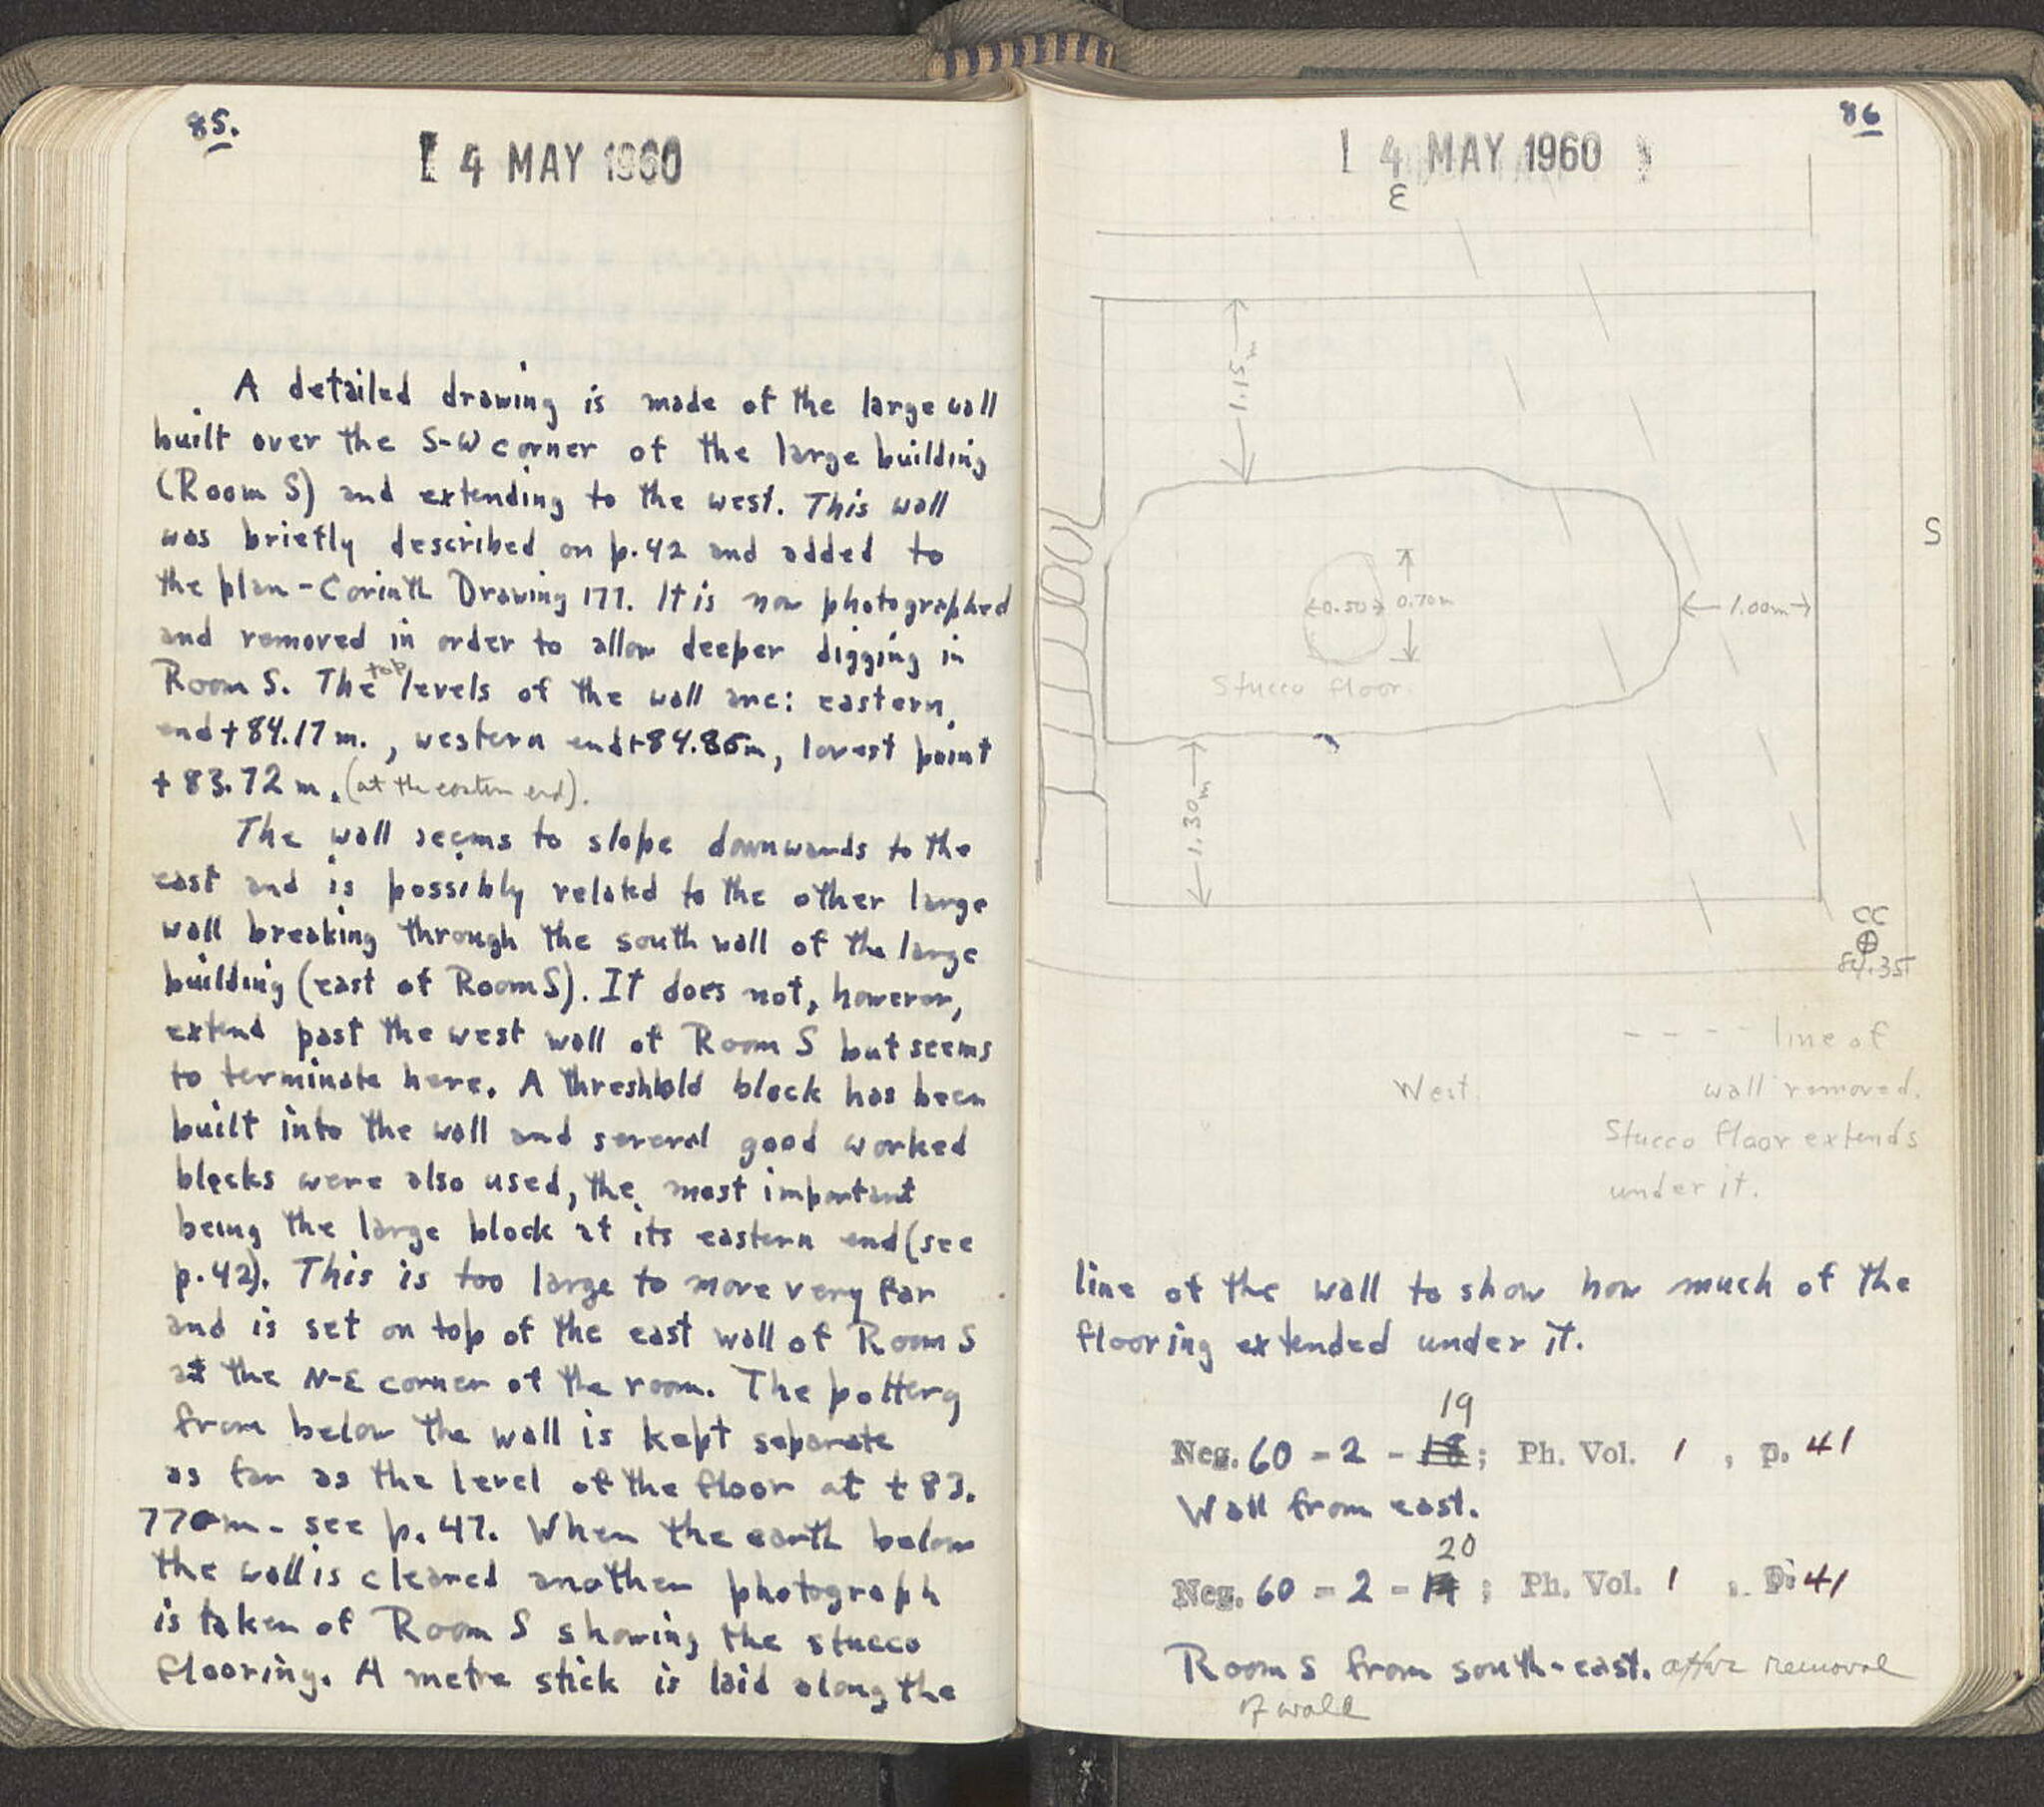 85.
[ 4 MAY 1960
A detailed drawing is made of the large wall
built over the S-W corner of the large building
(Room S) and extending to the west. This wall
was briefly described on p.42 and added to
the plan - Corinth Drawing 177. It is now photographed
and removed in order to allow deeper digging in
Room S. The top levels of the wall are: eastern
end + 84.17 m., western end + 84.86m, lowest point
+ 83.72 m. (at the eastern end).
The wall seems to slope downwards to the
east and is possibly related to the other large
wall breaking through the south wall of the large
building (east of Room S). It does not, however,
extend past the west wall of Room S but seems
to terminate here. A threshold block has been
built into the wall and several good worked
blocks were also used, the most important
being the large block at its eastern end (see
p.42). This is too large to move very far
and is set on top of the east wall of Room S
at the N-E corner of the room. The pottery
from below the wall is kept separate
as far as the level of the floor at + 83.
770m - see p. 47. When the earth below
the wall is cleared another photograph
is taken of Room S showing the stucco
flooring. A metre stick is laid along the
86
[ 4 MAY 1960
E
1.15m
S
0.50
0.70m
1.00m
Stucco floor.
1.30m
CC
84.35
- - - - line of
West
wall removed.
Stucco floor extends
under it.
line of the wall to show how much of the
flooring extended under it.
19
Neg. 60 - 2 - 18; Ph. Vol. 1, p. 41
Wall from east.
20
Neg. 60 - 2 - 19; Ph. Vol. 1, p. 41
Room S from south-east. after removal
of wall